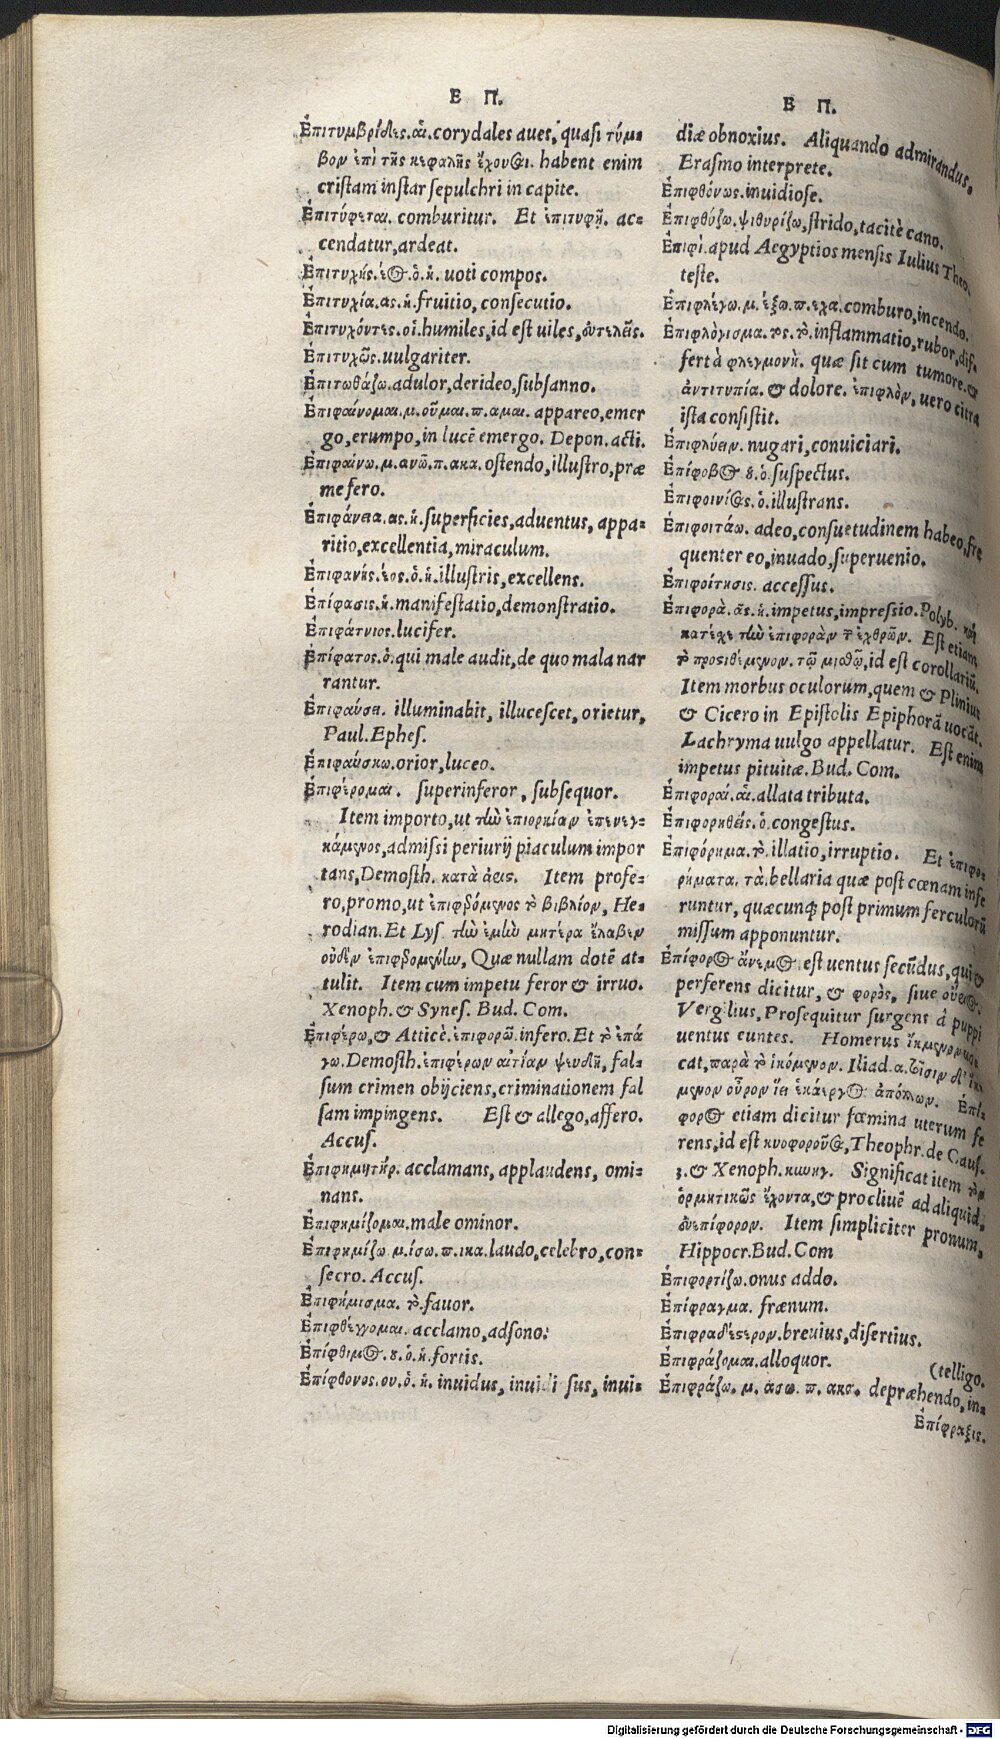 Ε Π.
Ἐπιτυμβρίδες. αἱ. corydales aues, quasi τύμ=
βον ἐπὶ τῆς κεφαλῆς ἔχουσαι. habent enim
cristam instar sepulchri in capite.
Ἐπιτύφεται. comburitur. Et ἐπιτυφῇ. ac=
cendatur, ardeat.
Ἐπιτυχής. έος. ὁ. ἡ. uoti compos.
Ἐπιτυχία. ας. ἡ. fruitio, consecutio.
Ἐπιτυχόντες. οἱ. humiles, id est uiles, εὐτελεῖς.
Ἐπιτυχῶς. uulgariter.
Ἐπιτωθάζω. adulor, derideo, subsanno.
Ἐπιφαίνομαι. μ. οῦμαι. π. αμαι. appareo, emer
go, erumpo, in lucē emergo. Depon. acti.
Ἐπιφαίνω. μ. ανῶ. π. ακα. ostendo, illustro, præ
me fero.
Ἐπιφάνεια. ας. ἡ. superficies, aduentus, appa=
ritio, excellentia, miraculum.
Ἐπιφανής. έος. ὁ. ἡ. illustris, excellens.
Ἐπίφασις. ἡ. manifestatio, demonstratio.
Ἐπιφάτνιος. lucifer.
Ἐπίφατος. ὁ. qui male audit, de quo mala nar
rantur.
Ἐπιφαύσει. illuminabit, illucescet, orietur,
Paul. Ephes.
Ἐπιφαύσκω. orior, luceo.
Ἐπιφέρομαι. superinferor, subsequor.
Item importo, ut τὼ ἐπιορκίαν ἐπενεγ=
κάμενος, admissi periurij piaculum impor
tans, Demosth. κατὰ ἀεις. Item profe=
ro, promo, ut ἐπιφερόμενος τὸ βιβλίον, He=
rodian. Et Lys. τὼ ἐμὼ μητέρα ἔλαβεν
οὐδὲν ἐπιφερομένlω, Quæ nullam dotē at=
tulit. Item cum impetu feror & irruo.
Xenoph. & Synes. Bud. Com.
Ἐπιφέρω, & Atticè. ἐπιφορῶ. infero. Et τὸ ἐπά
γω. Demosth. ἐπιφέρων αἰτίαν ψευδῆ, fal=
sum crimen obijciens, criminationem fal
sam impingens. Est & allego, affero.
Accus.
Ἐπιφημητήρ. acclamans, applaudens, omi=
nans.
Ἐπιφημίζομαι. male ominor.
Ἐπιφημίζω. μ. ίσω. π. ικα. laudo, celebro, con=
secro. Accus.
Ἐπιφήμισμα. τὸ. fauor.
Ἐπιφθέγγομαι. acclamo, adsono.
Ἐπίφθιμος. ȣ. ὁ. ἡ. fortis.
Ἐπίφθονος. ου. ὁ. ἡ. inuidus, inuidi sus, inui=
Ε Π.
diæ obnoxius. Aliquando admirandus.
Erasmo interprete.
Ἐπιφθόνως. inuidiose.
Ἐπιφθύζω. ψιθυρίζω, strido, tacitè cano.
Ἐπιφὶ. apud Aegyptios mensis Iulius Theo.
teste.
Ἐπιφλέγω. μ. έξω. π. εχα. comburo, incendo.
Ἐπιφλόγισμα. τος. τὸ. inflammatio, rubor, dif=
fert à φλεγμονή. quæ sit cum tumore. &
ἀντιτυπία. & dolore. ἐπιφλὸν, uero citra
ista consistit.
Ἐπιφλύειν. nugari, conuiciari.
Ἐπίφοβος ȣ. ὁ. suspectus.
Ἐπιφοινίσας. ὁ. illustrans.
Ἐπιφοιτάω. adeo, consuetudinem habeo, fre
quenter eo, inuado, superuenio.
Ἐπιφοίτησις. accessus.
Ἐπιφορὰ. ᾶς. ἡ. impetus, impressio. Polyb. καὶ
κατέχε τὼ ἐπιφορὰν τ ἐχθρῶν. Est etiam
τὸ προσιθέμενον. τῷ μισθῷ, id est corollariū.
Item morbus oculorum, quem & Plinius
& Cicero in Epistolis Epiphorā uocāt.
Lachryma uulgo appellatur. Est enim
impetus pituitæ. Bud. Com.
Ἐπιφοραί. αἱ. allata tributa.
Ἐπιφορηθείς. ὁ. congestus.
Ἐπιφόρημα. τὸ. illatio, irruptio. Et ἐπιφο=
ρήματα. τὰ. bellaria quæ post cœnam infe
runtur, quæcunq; post primum ferculorū
missum apponuntur.
Ἐπίφορος ἄνεμος. est uentus secūdus, qui &
perferens dicitur, & φορὸς, siue οὔριος.
Vergilius, Prosequitur surgens à puppi
uentus euntes. Homerus ἴκμενον uo=
cat, παρὰ τὸ ἱκόμενον. Iliad. α. τοῖσιν δ' ἴκ
μενον οὖρον ἵει ἑκάεργος ἀπόλλων. Ἐπί
φορος etiam dicitur fœmina uterum fe
rens, id est κυοφοροῦσα, Theophr. de Caus.
3. & Xenoph. κυνηγ. Significat item τὸν
ὁρμητικῶς ἔχοντα, & procliuē ad aliquid.
ἀνεπίφορον. Item simpliciter pronum,
Hippocr. Bud. Com
Ἐπιφορτίζω. onus addo.
Ἐπίφραγμα. frænum.
Ἐπιφραδέστερον. breuius, disertius.
Ἐπιφράζομαι. alloquor.
(telligo.
Ἐπιφράζω. μ. άσω. π. ακα. depræhendo, in=
Ἐπίφραξις.
Digitalisierung gefördert durch die Deutsche Forschungsgemeinschaft - DFG